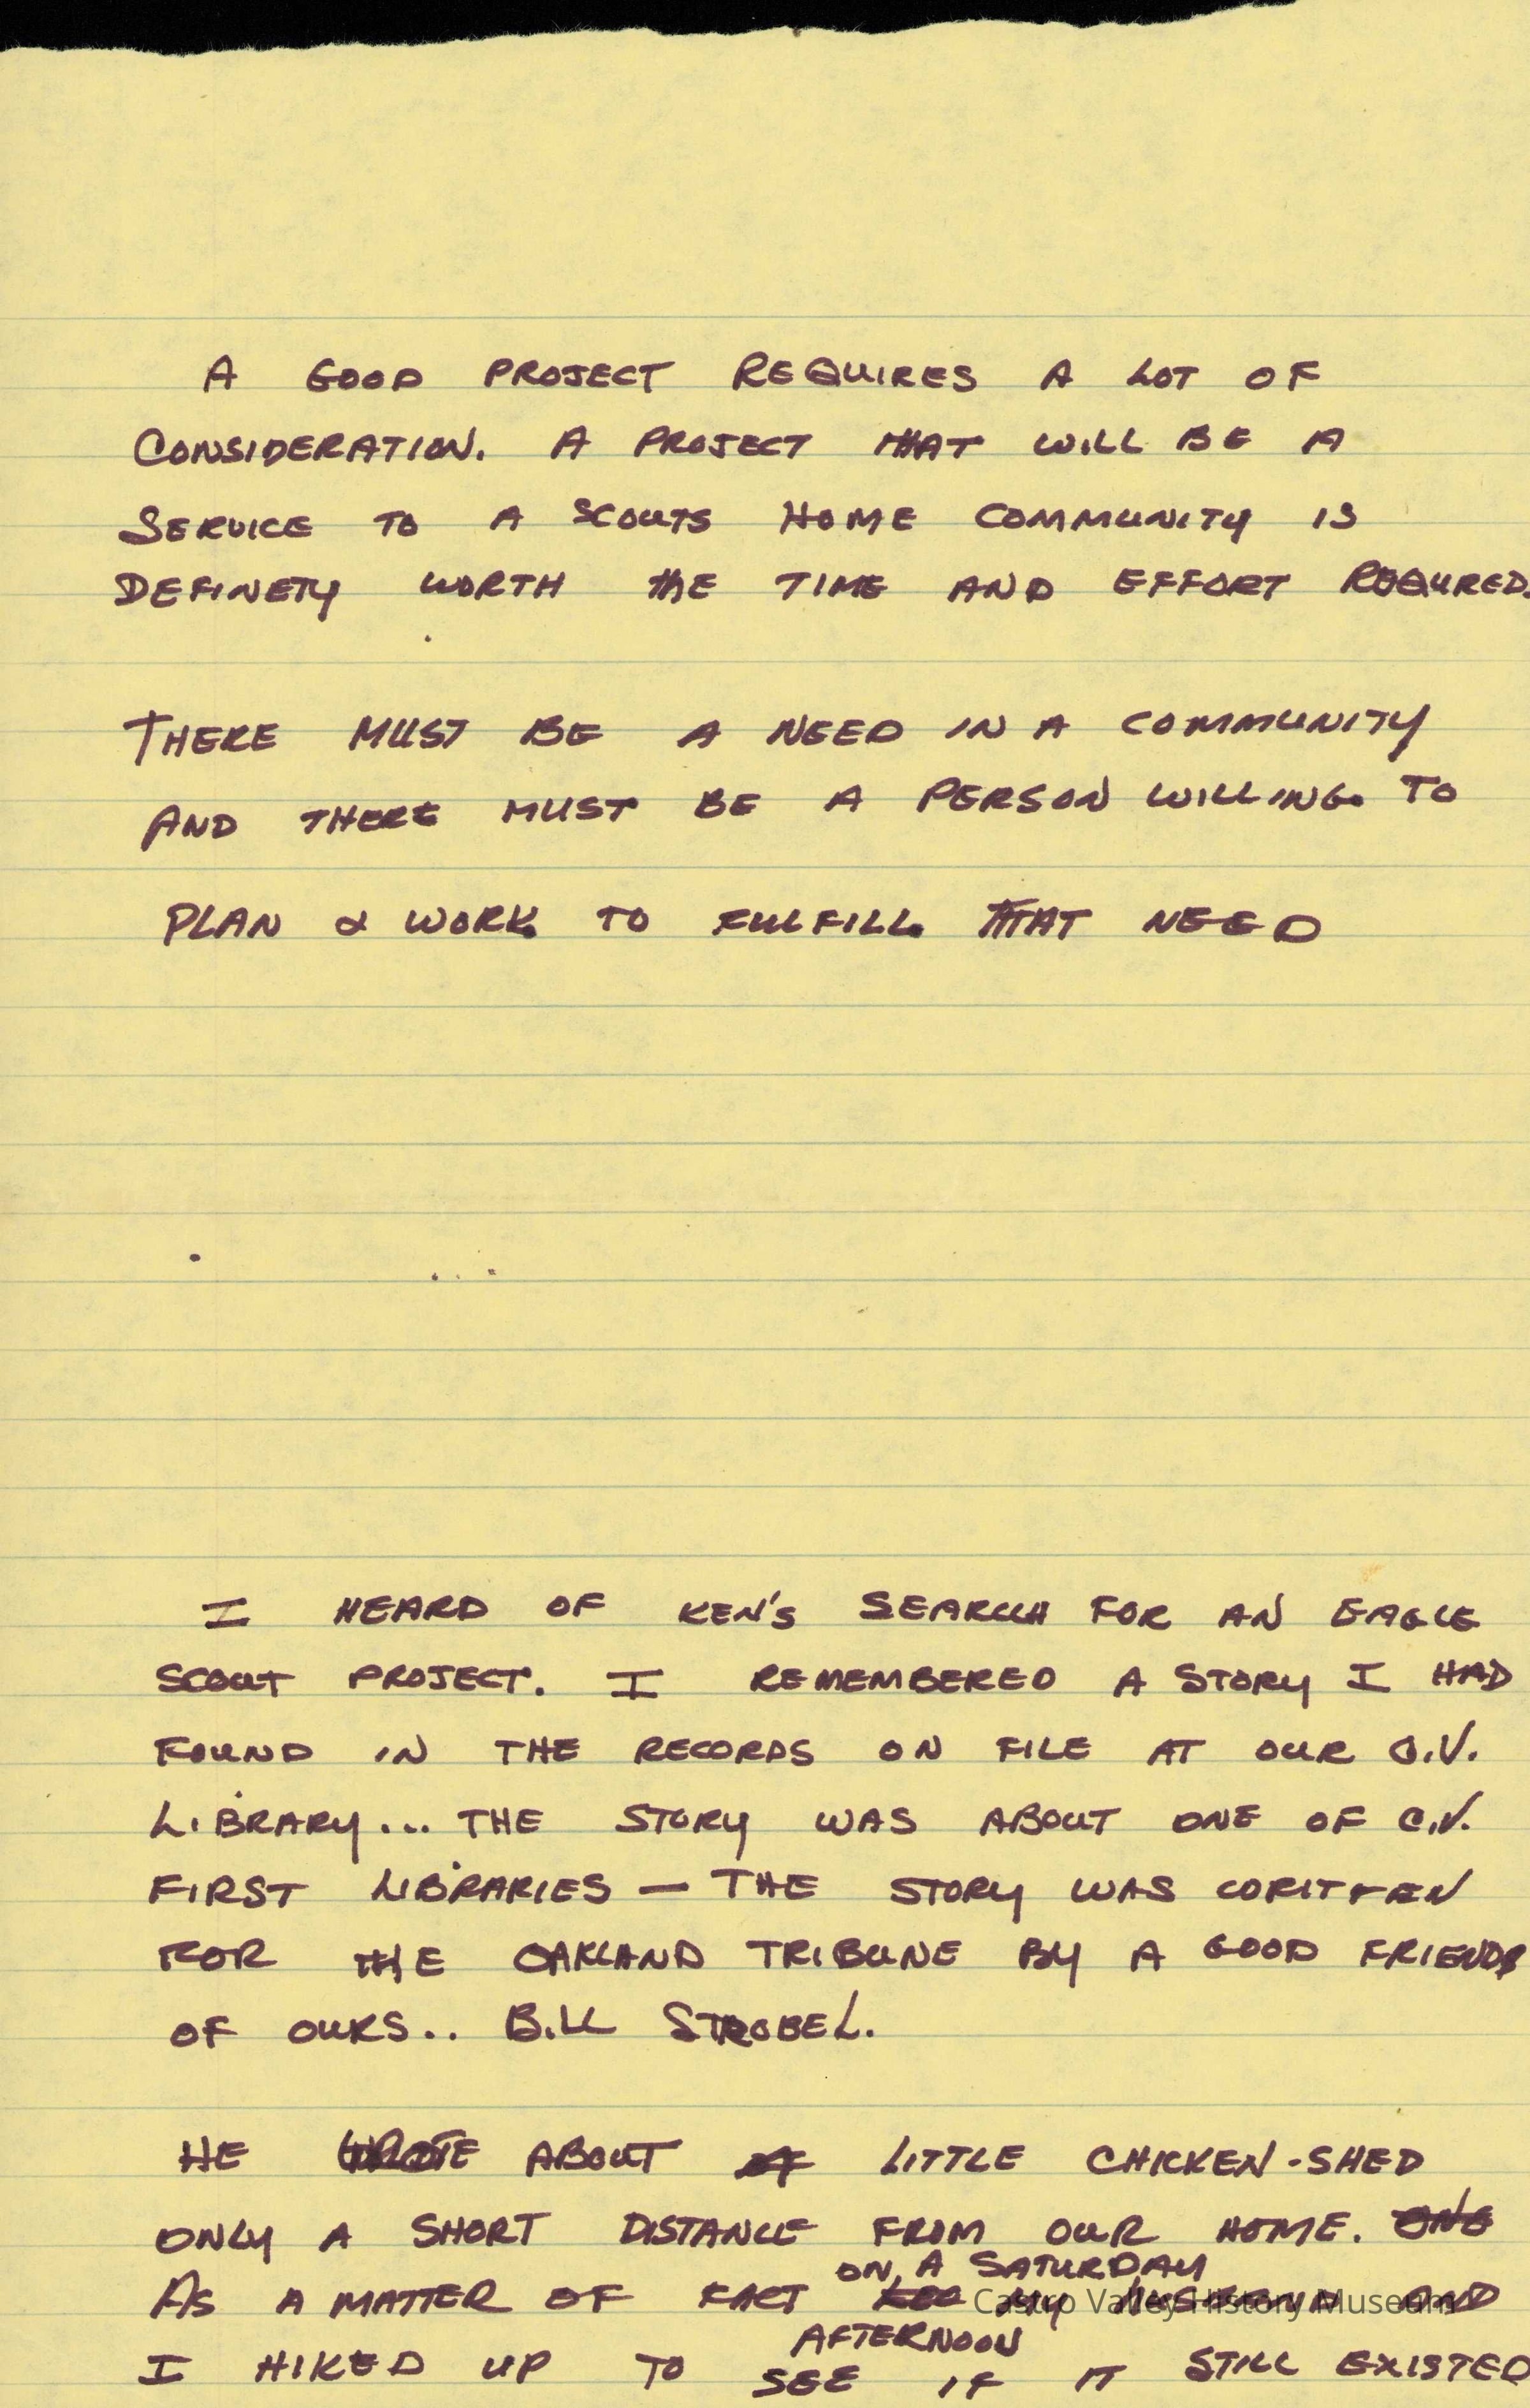 A GOOD PROJECT REQUIRES A LOT OF
CONSIDERATION. A PROJECT THAT WILL BE A
SERVICE TO A SCOUTS HOME COMMUNITY IS
DEFINETY WORTH THE TIME AND EFFORT REQURED.
THERE MUST BE A NEED IN A COMMUNITY
AND THERE MUST BE A PERSON WILLING TO
PLAN & WORK TO FULFILL THAT NEED
I HEARD OF KEN'S SEARCH FOR AN EAGLE
SCOUT PROJECT. I REMEMBERED A STORY I HAD
FOUND IN THE RECORDS ON FILE AT OUR C.V.
LIBRARY... THE STORY WAS ABOUT ONE OF C.V.
FIRST LIBRARIES — THE STORY WAS WRITTEN
FOR THE OAKLAND TRIBUNE BY A GOOD FRIEND
OF OURS.. BILL STROBEL.
HE WROTE ABOUT A LITTLE CHICKEN-SHED
ONLY A SHORT DISTANCE FROM OUR HOME. ONE
ON A SATURDAY
AS A MATTER OF FACT MY HUSBAND AND
Castro Valley History Museum
AFTERNOON
I HIKED UP TO SEE IF IT STILL EXISTED